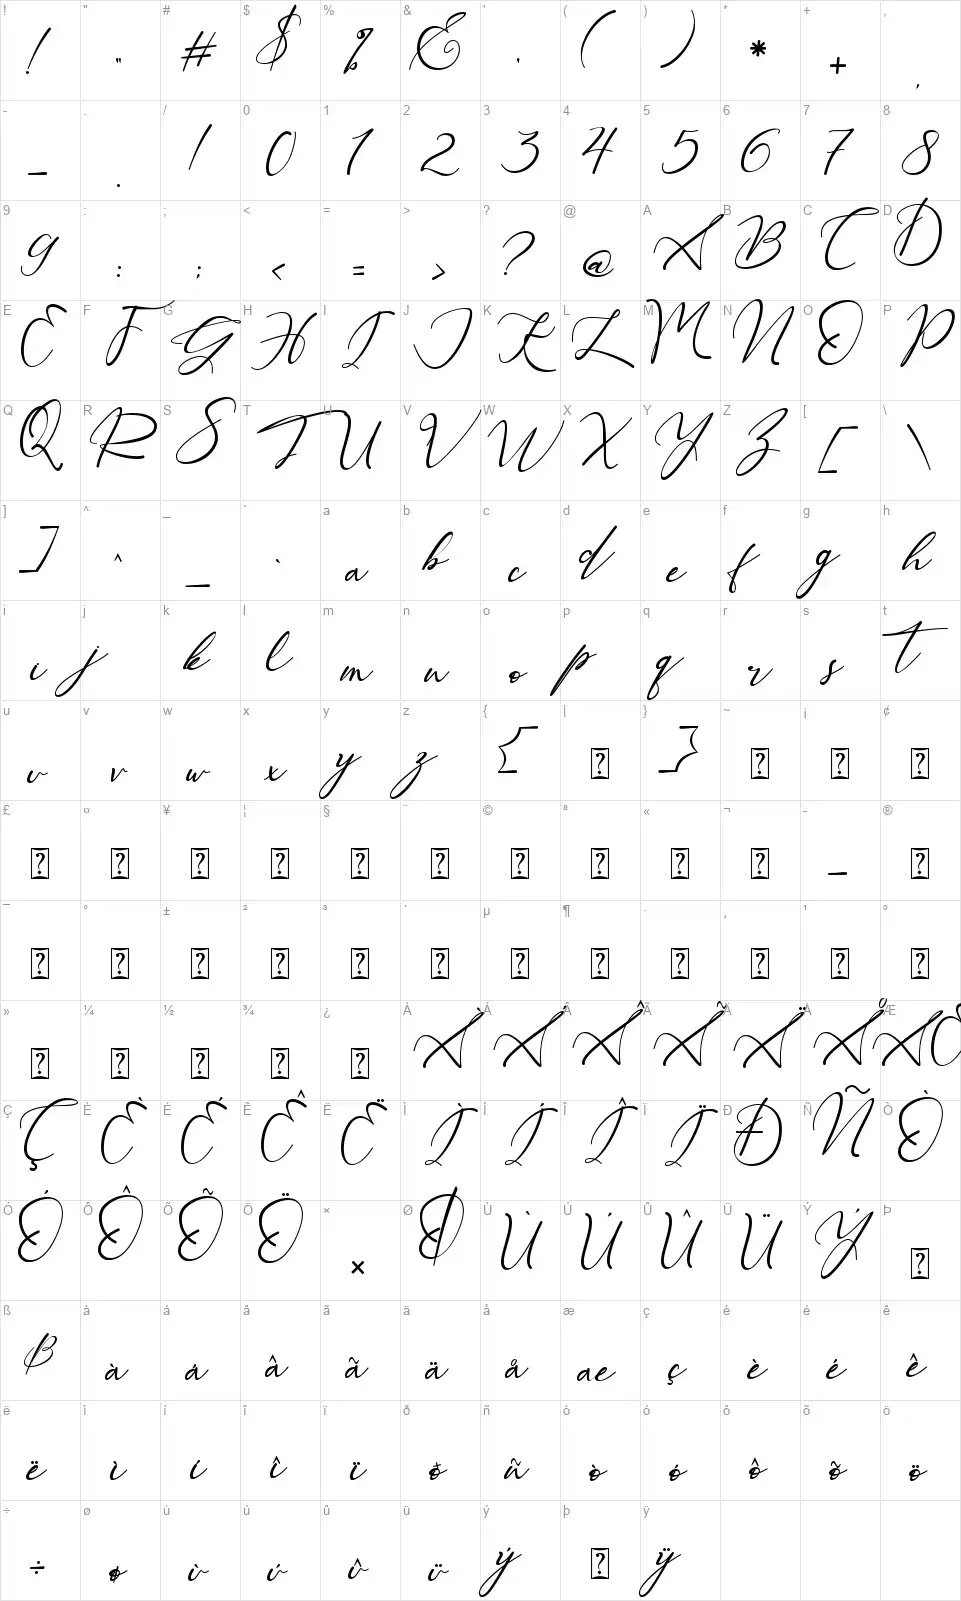 ! " # $ % & ' ( ) * + ,
! " # $ % & ' ( ) * + ,
- . / 0 1 2 3 4 5 6 7 8
- . / 0 1 2 3 4 5 6 7 8
9 : ; < = > ? @ A B C D
9 : ; < = > ? @ A B C D
E F G H I J K L M N O P
E F G H I J K L M N O P
Q R S T U V W X Y Z [ \
Q R S T U V W X Y Z [ \
] ^ _ ` a b c d e f g h
] ^ _ ` a b c d e f g h
i j k l m n o p q r s t
i j k l m n o p q r s t
u v w x y z { | } ~ ¡ ¢
u v w x y z { ? } ? ? ?
£ ¤ ¥ ¦ § ¨ © ª « ¬ - ®
? ? ? ? ? ? ? ? ? ? - ?
¯ ° ± ² ³ ´ µ ¶ · ¸ ¹ º
? ? ? ? ? ? ? ? ? ? ? ?
» ¼ ½ ¾ ¿ À Á Â Ã Ä Å Æ
? ? ? ? ? À Á Â Ã Ä Å Æ
Ç È É Ê Ë Ì Í Î Ï Ð Ñ Ò
Ç È É Ê Ë Ì Í Î Ï Ð Ñ Ò
Ó Ô Õ Ö × Ø Ù Ú Û Ü Ý Þ
Ó Ô Õ Ö × Ø Ù Ú Û Ü Ý ?
ß à á â ã ä å æ ç è é ê
ß à á â ã ä å æ ç è é ê
ë ì í î ï ð ñ ò ó ô õ ö
ë ì í î ï ð ñ ò ó ô õ ö
÷ ø ù ú û ü ý þ ÿ
÷ ø ù ú û ü ý ? ÿ